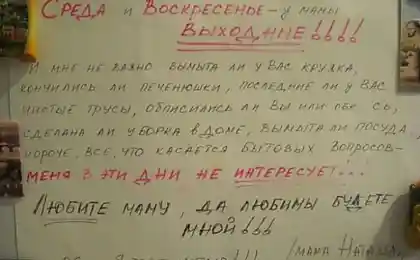 Среда и Воскресенье – у мамы
ВЫХОДНЫЕ!!!!
И мне не важно вымыта ли у вас кружка,
кончились ли печенюшки, последние ли у вас
чистые трусы, описились ли вы или
сделана ли уборка в доме, вымыта ли посуда,
короче, всё, что касается бытовых вопросов –
МЕНЯ В ЭТИ ДНИ НЕ ИНТЕРЕСУЕТ!!!
Любите маму, да любимы будете
мной!!!
/мама Наташа